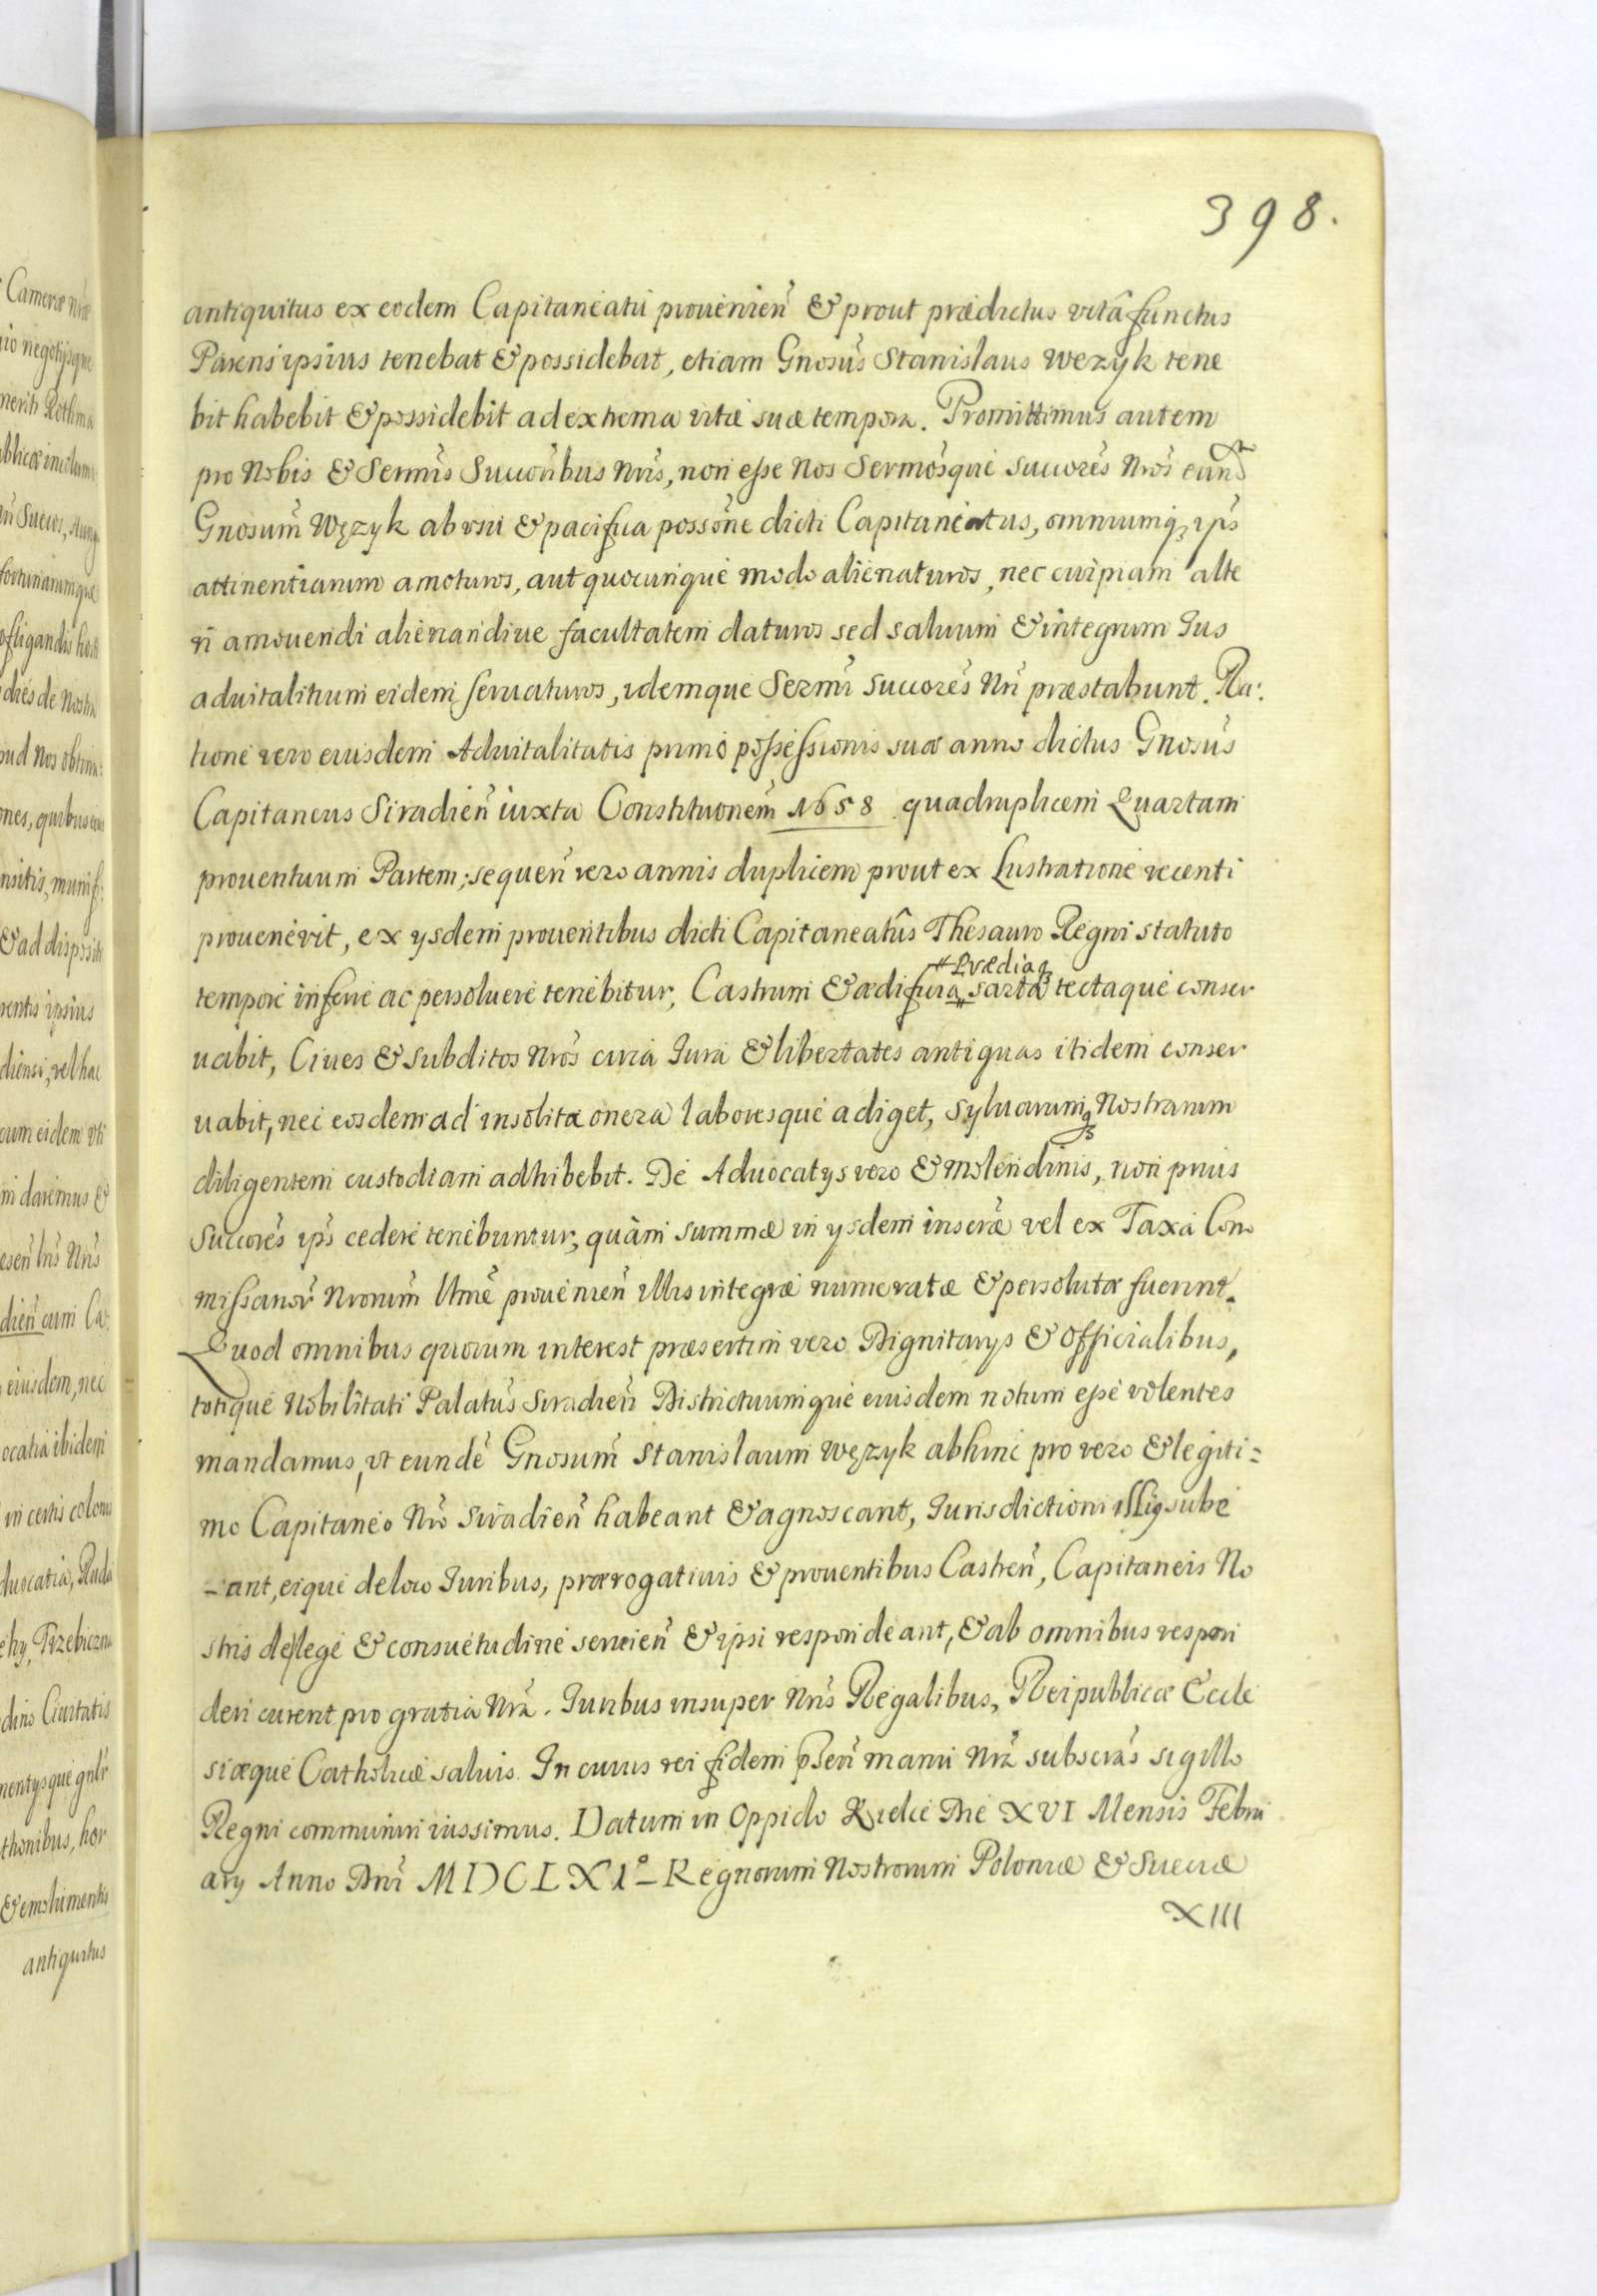 398.
antiquitus ex eodem Capitaneatu provenień & prout prædictus vitâ functus
Parens ipsius tenebat & possidebat, etiam Gnosús Stanislaus Wezyk tene
bit habebit & possidebit ad extrema vitæ suæ tempora. Promittimus autem
pro Nobis & Sermis Succoribus Nris, non esse Nos Sermosque Succores Nros eund
Gnosum Wężyk ab vsu & pacifica possone dicti Capitaneatus, omniumq ips
attinentiarum amoturos, aut quocunque modo alienaturos, nec cuipiam alte
ri amouendi alienandiue facultatem daturos sed saluum & integrum Jus
aduitalitium eidem seruaturos, idemque Sermi Succores Nri præstabunt. Ra:
tione vero eiusdem Aduitalitatis primo possessionis suæ anno dictus Gnosus
Capitaneus Siradień iuxta Constitutionem 1658 quadruplicem Quartam
prouentuum Partem; sequeń vero annis duplicem prout ex Lustratione recenti
prouenerit, ex ysdem prouentibus dicti Capitaneatûs Thesauro Regni statuto
# Prædiaq
tempore inferre ac persoluere tenebitur, Castrum & ædificia # sarta tectaque conser
uabit, Ciues & subditos Nros circa Jura & libertates antiquas itidem conser
uabit, nec eosdem ad insolita onera laboresque adiget, syluarumq Nostrarum
diligentem custodiam adhibebit. De Aduocatys vero & Molendinis, non prius
Succores ips cedere tenebuntur, quàm summæ in ysdem inscræ vel ex Taxa Com
missarior Nrorum Utme prouenień illis integræ numeratæ & persolutæ fuerint.
Quod omnibus quorum interest præsertim vero Dignitarys & Officialibus,
totique Nobilitati Palatus Siradień Districtuumque eiusdem notum esse volentes
mandamus, vt eunde Gnosum Stanislaum Wężyk abhinc pro vero & legiti=
mo Capitaneo Nro Siradień habeant & agnoscant, Jurisdictioni illiq sube
-ant, eique de loco Juribus, prærogatiuis & prouentibus Castreń, Capitaneis No
stris de lege & consuetudine seruień & ipsi respondeant, & ab omnibus respon
deri curent pro gratia Nra. Juribus insuper Nris Regalibus, Reipublicæ Eccle
siæque Catholicæ saluis. In cuius rei fidem pseń manu Nra subscras sigillo
Regni communiri iussimus. Datum in Oppido Kielce Die XVI Mensis Febru
ary Anno Dni MDCLXIº - Regnorum Nostrorum Poloniæ & Sueciæ
XIII